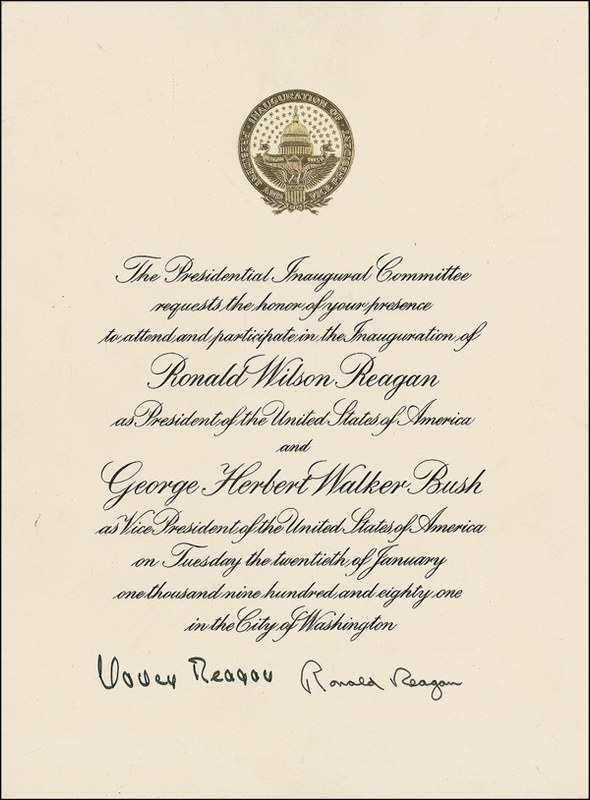 INAUGURATION OF
PRESIDENT AND VICE PRESIDENT
The Presidential Inaugural Committee
requests the honor of your presence
to attend and participate in the Inauguration of
Ronald Wilson Reagan
as President of the United States of America
and
George Herbert Walker Bush
as Vice President of the United States of America
on Tuesday the twentieth of January
one thousand nine hundred and eighty one
in the City of Washington
Nancy Reagan Ronald Reagan